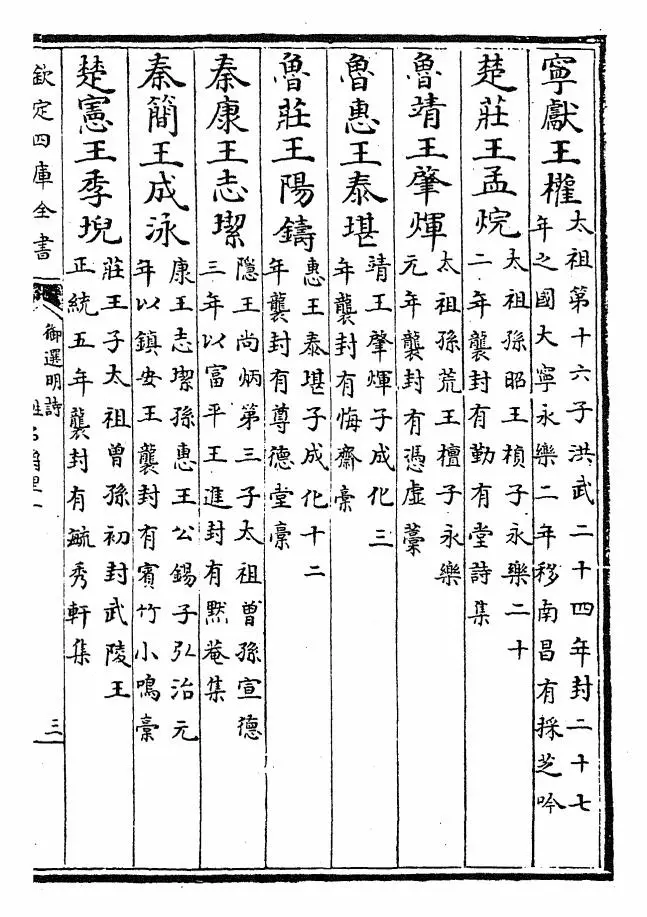 寧獻王權太祖第十六子洪武二十四年封二十七
年之國大寧永樂二年移南昌有採芝吟
楚莊王孟烷太祖孫昭王楨子永樂二十
二年襲封有勤有堂詩集
魯靖王肇煇太祖孫荒王檀子永樂
元年襲封有憑虛藁
魯惠王泰堪靖王肇煇子成化三
年襲封有悔齋稾
魯莊王陽鑄惠王泰堪子成化十二
年襲封有尊德堂稾
秦康王志㓗隱王尚炳第三子太祖曾孫宣德
三年以富平王進封有默菴集
秦簡王成泳康王志㓗孫惠王公錫子弘治元
年以鎮安王襲封有賓竹小鳴稾
楚憲王季堄莊王子太祖曾孫初封武陵王
正統五年襲封有毓秀軒集
欽定四庫全書
御選明詩
姓名爵里一
三